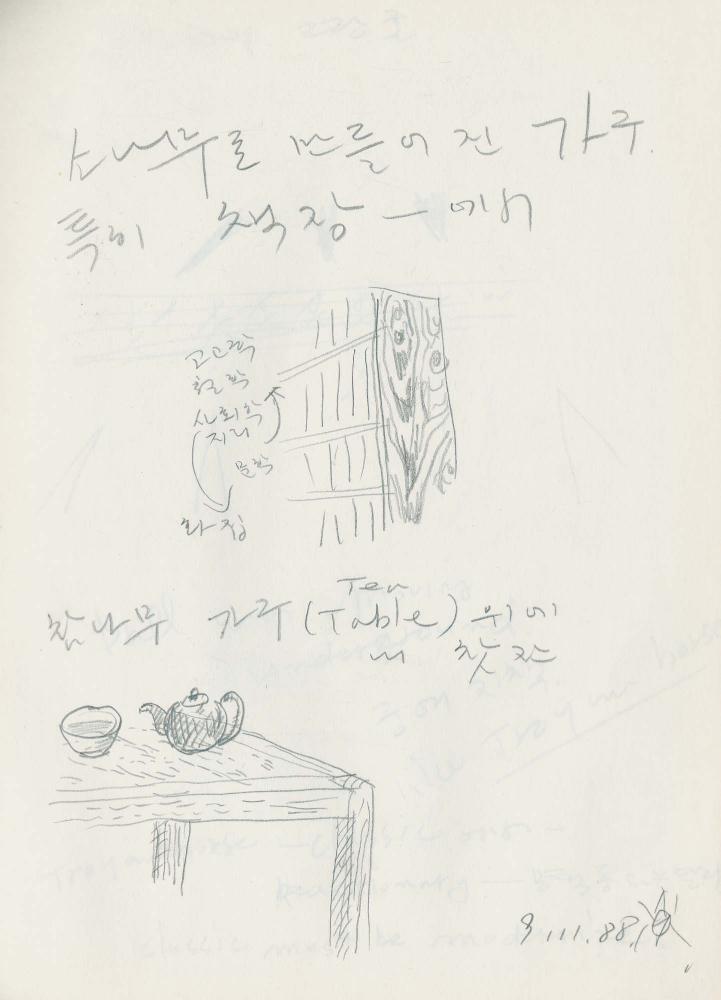 소나무로 만들어진 가구.
특히 책장 — 에서
고고학
철학
사회학
(지리)
문학
화집
참나무 가구 (Tea Table) 위에
찻잔
9.111.88.